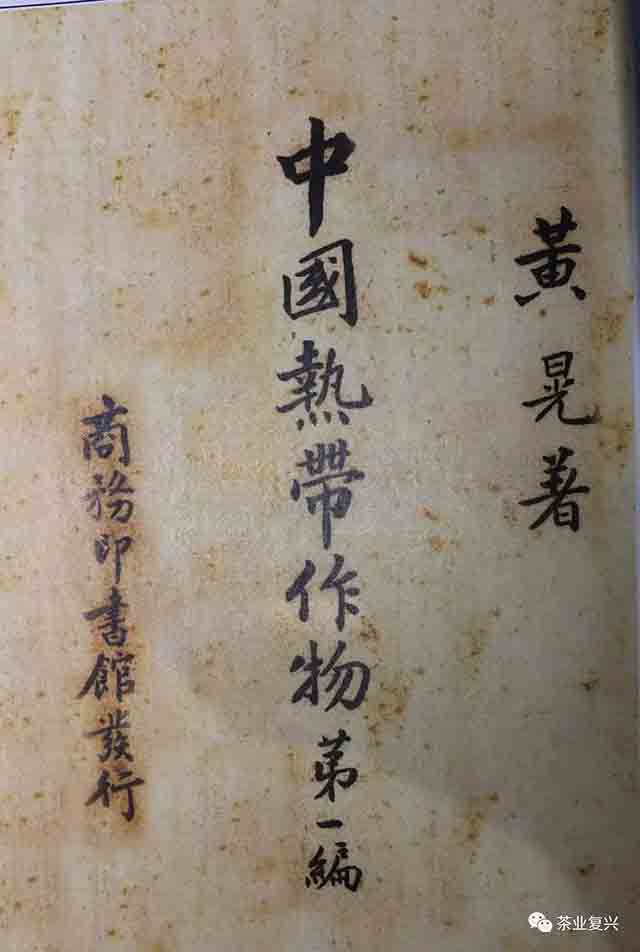 黃晃著
中國熱帶作物第一編
商務印書館發行
茶业复兴